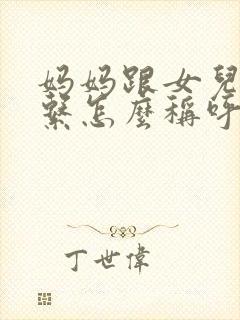 妈妈跟女兒
繫怎麼稱呼
丁世偉